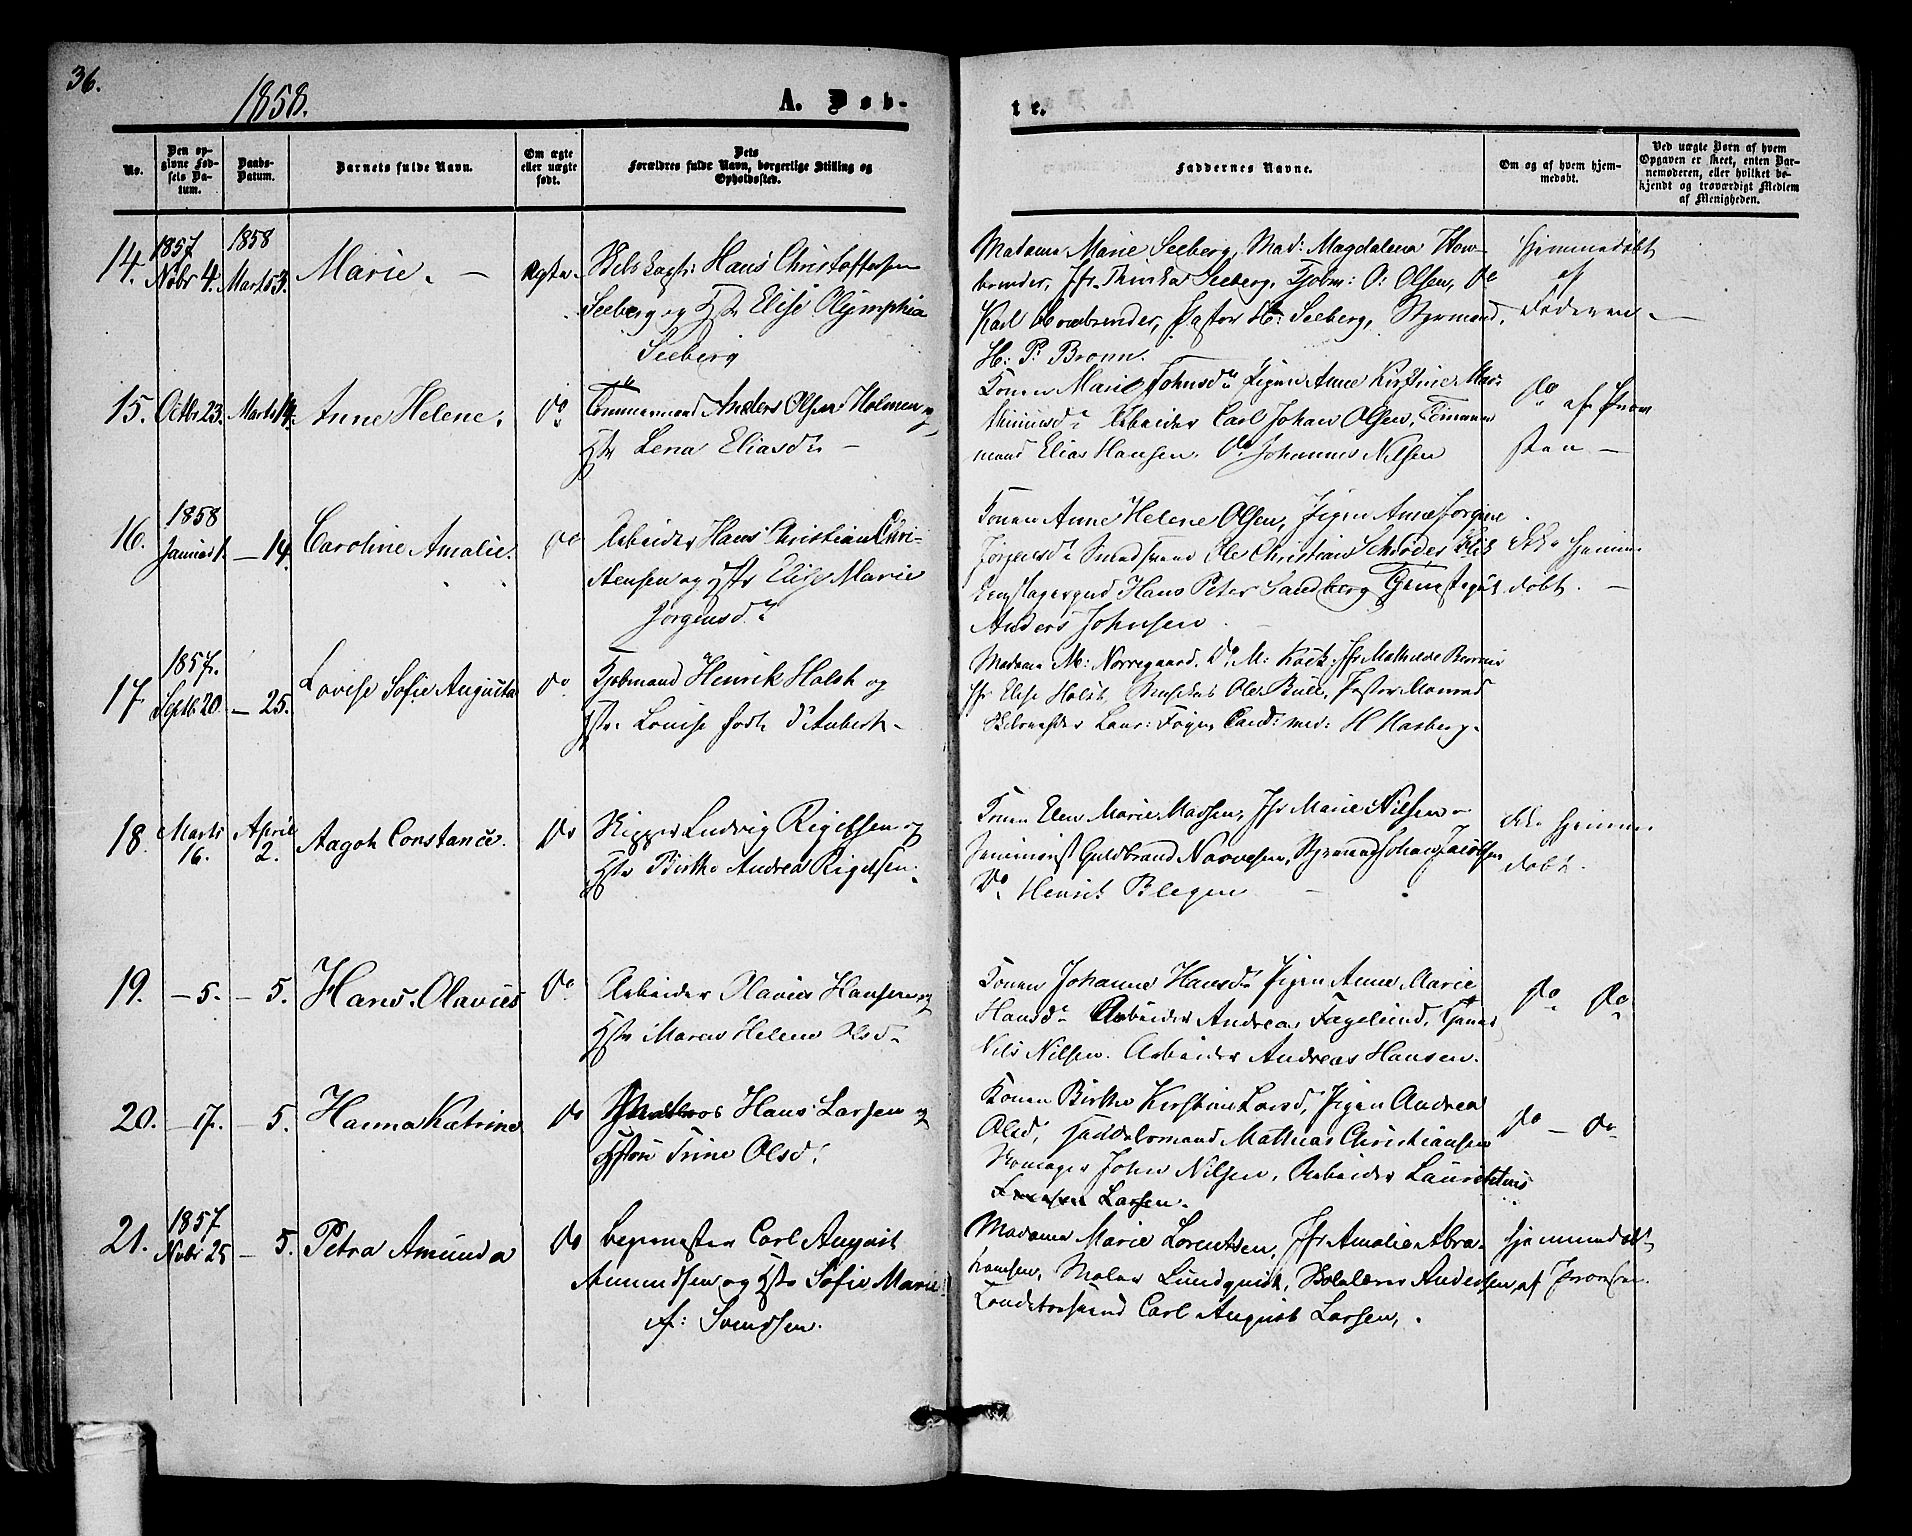 36.
1858.
A. Døb-
te.
No.
Den op-
givne Fød-
sels Da-
tum.
Daabs-
Datum.
Barnets fulde Navn.
Om ægte
eller uægte
født.
Dets
Forældres fulde Navn, borgerlige Stilling og
Opholdssted.
Faddernes Navne.
Om og af hvem hjem-
medøbt.
Ved uægte Børn af hvem
Opgaven er skeet, enten Bar-
nemoderen, eller hvilket be-
kjendt og troværdigt Medlem
af Menigheden.
14. 1857 Nobr 4. 1858 Marts 3. Marie. — Ægte. Hans Christoffersen
Seeberg og Hstr Elise Olymphia
Seeberg
Madame Marie Seeberg, Mad: Magdalena
Seeberg, Kjøbm: O: Olsen, Do
Karl Pastor H: Seeberg, Styrmand
H: P: Bronn.
Hjemmedøbt
af
Faderen —
15. Octbr 23. Marts 14. Anne Helene. Do Tømmermand Anders Olsen Holmen og
Hstr Lena Eliasdr —
Konen Marie Johnsdr Pigen Anne Kirstine
Arbeider Carl Johan Olsen, Tømmer
mand Elias Hansen. Do Johannes Nilsen
Do af Præ
sten —
16. 1858 Januar 1. — 14. Caroline Amalie. Do Arbeider Hans Christian Chri-
stensen og Hstr Elise Marie
Jørgensdr
Konen Anne Helene Olsen, Pigen Anne Jørgine
Jørgensdr Ole Christian Schrøder
Hans Peter Sandberg
Anders Johnsen.
Ikke hjemme
døbt. —
17. 1857. Septbr 20 — 25. Lovise Sofie Augusta Do Kjøbmand Henrik Holst og
Hstr. Louise født d'Aubert —
Madame M: Norregaard. Do M: Koch. Jfr Mathilde
Jfr Elise Holst Ole Bull, Pastor Monrad
Laur: Cand: med: H
18. Marts 16. April 2. Aagot Constance. Do Skipper Ludvig Rigelsen og
Hstr Birthe Andrea Rigelsen.
Konen Elen Marie Madsen, Jfr Marie Nilsen
Seminarist Guldbrand Narvesen, Styrmand Johan Jacobsen
Do Henrik Blegen —
Ikke hjemme
døbt.
19. — 5. — 5. Hans Olavus Do Arbeider Olavus Hansen og
Hstr Maren Helene Olsdr
Konen Johanne Hansdr Pigen Anne Marie
Hansdr Arbeider Andreas Fagelund,
Nils Nilsen. Arbeider Andreas Hansen.
Do Do
20. — 17. — 5. Hanna Katrine Do Hans Larsen og
Hstru Trine Olsd.
Konen Birthe Kirstine Larsd, Pigen Andrea
Olsd, Mathias Christiansen
Skomager John Nilsen, Arbeider Laurentius
Larsen.
Do — Do
21. 1857 Nobr 25 — 5. Petra Amunda Do Carl August
Amundsen og Hstr Sofie Marie
f: Svendsen.
Madame Marie Lorentsen, Jfr Amalie Abra-
hamsen, Maler Lundquist, Skolelærer Andersen,
Carl August Larsen.
Hjemmedøbt
af Præsten.